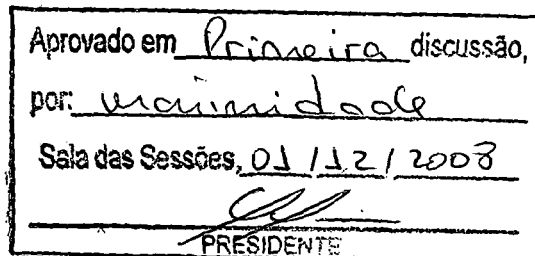 Aprovado em Primeira discussão,
por: unanimidade
Sala das Sessões, 01/12/2008
PRESIDENTE